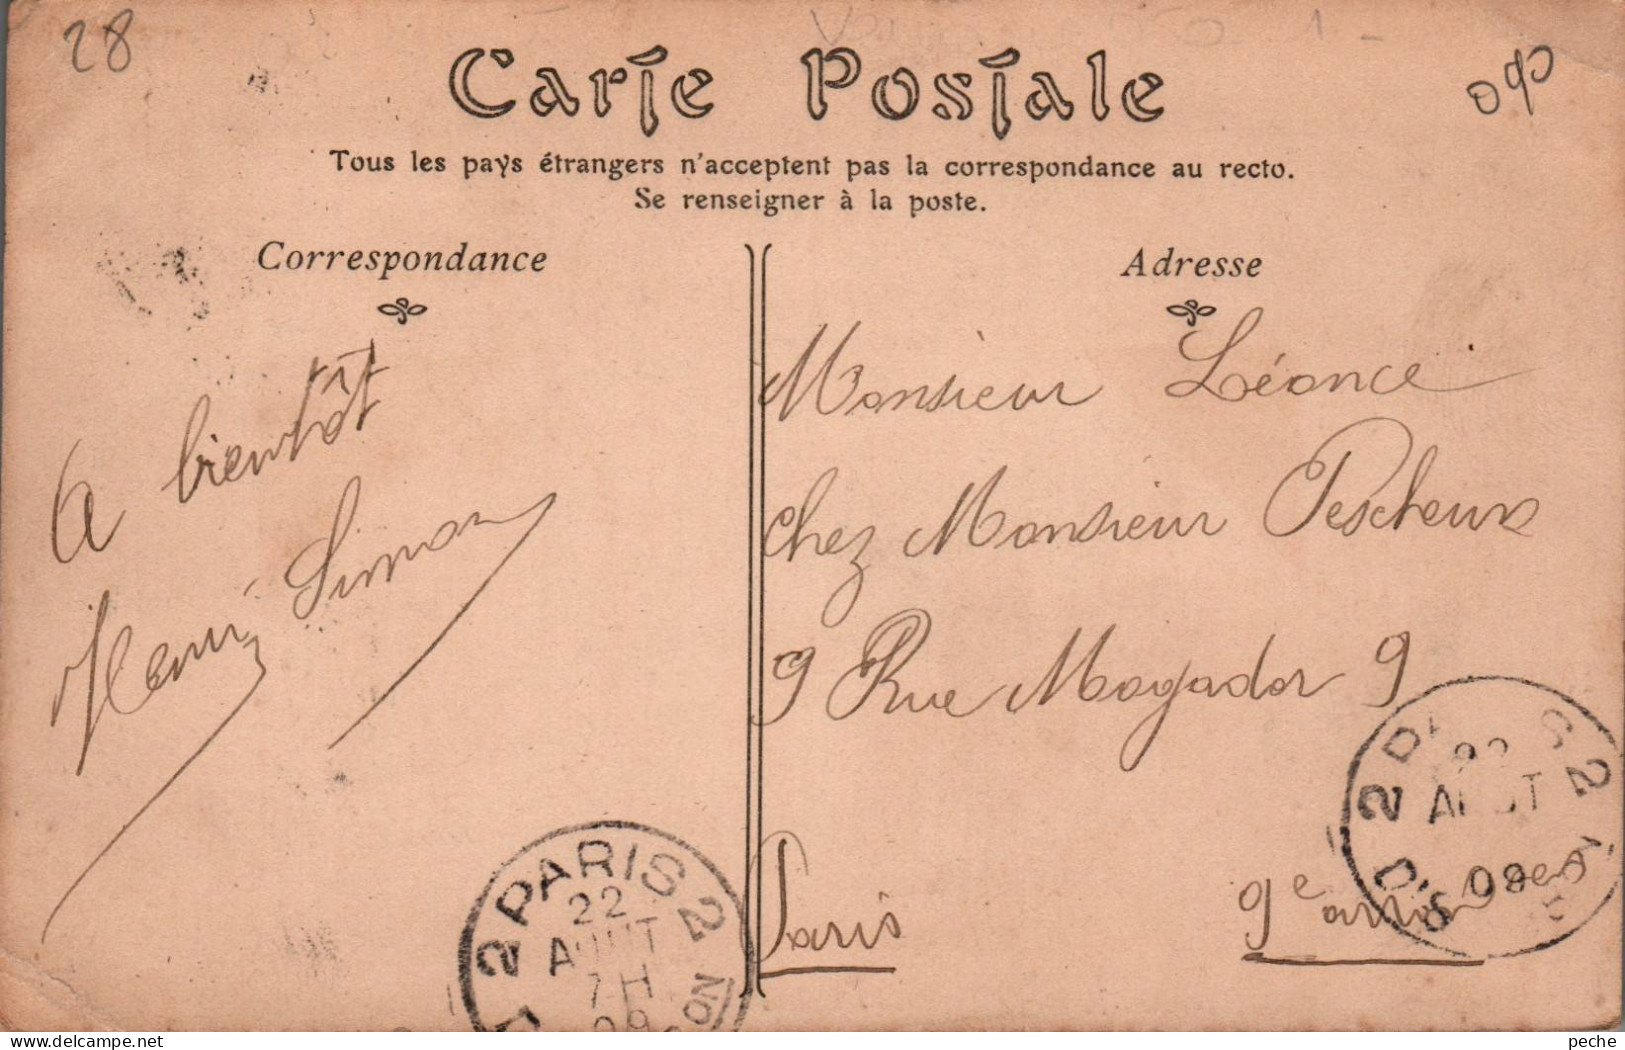 28
Carte Postale
Tous les pays étrangers n'acceptent pas la correspondance au recto.
Se renseigner à la poste.
Correspondance
A bientôt
Henri Simon
Adresse
Monsieur Léonce
chez Monsieur Pescheux
9 Rue Mogador 9
Paris
9e arron
2 PARIS 2
22
AOUT
7H
09
DISTRIBUTION
22
AOUT
09
peche